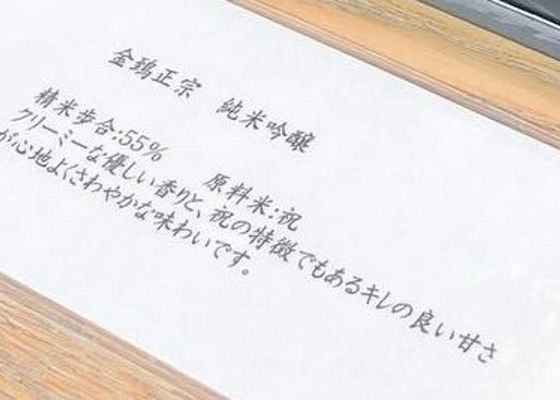 金鵄正宗　純米吟醸
精米歩合:55%　原料米:祝
クリーミーな優しい香りと、祝の特徴でもあるキレの良い甘さ
が心地よくさわやかな味わいです。